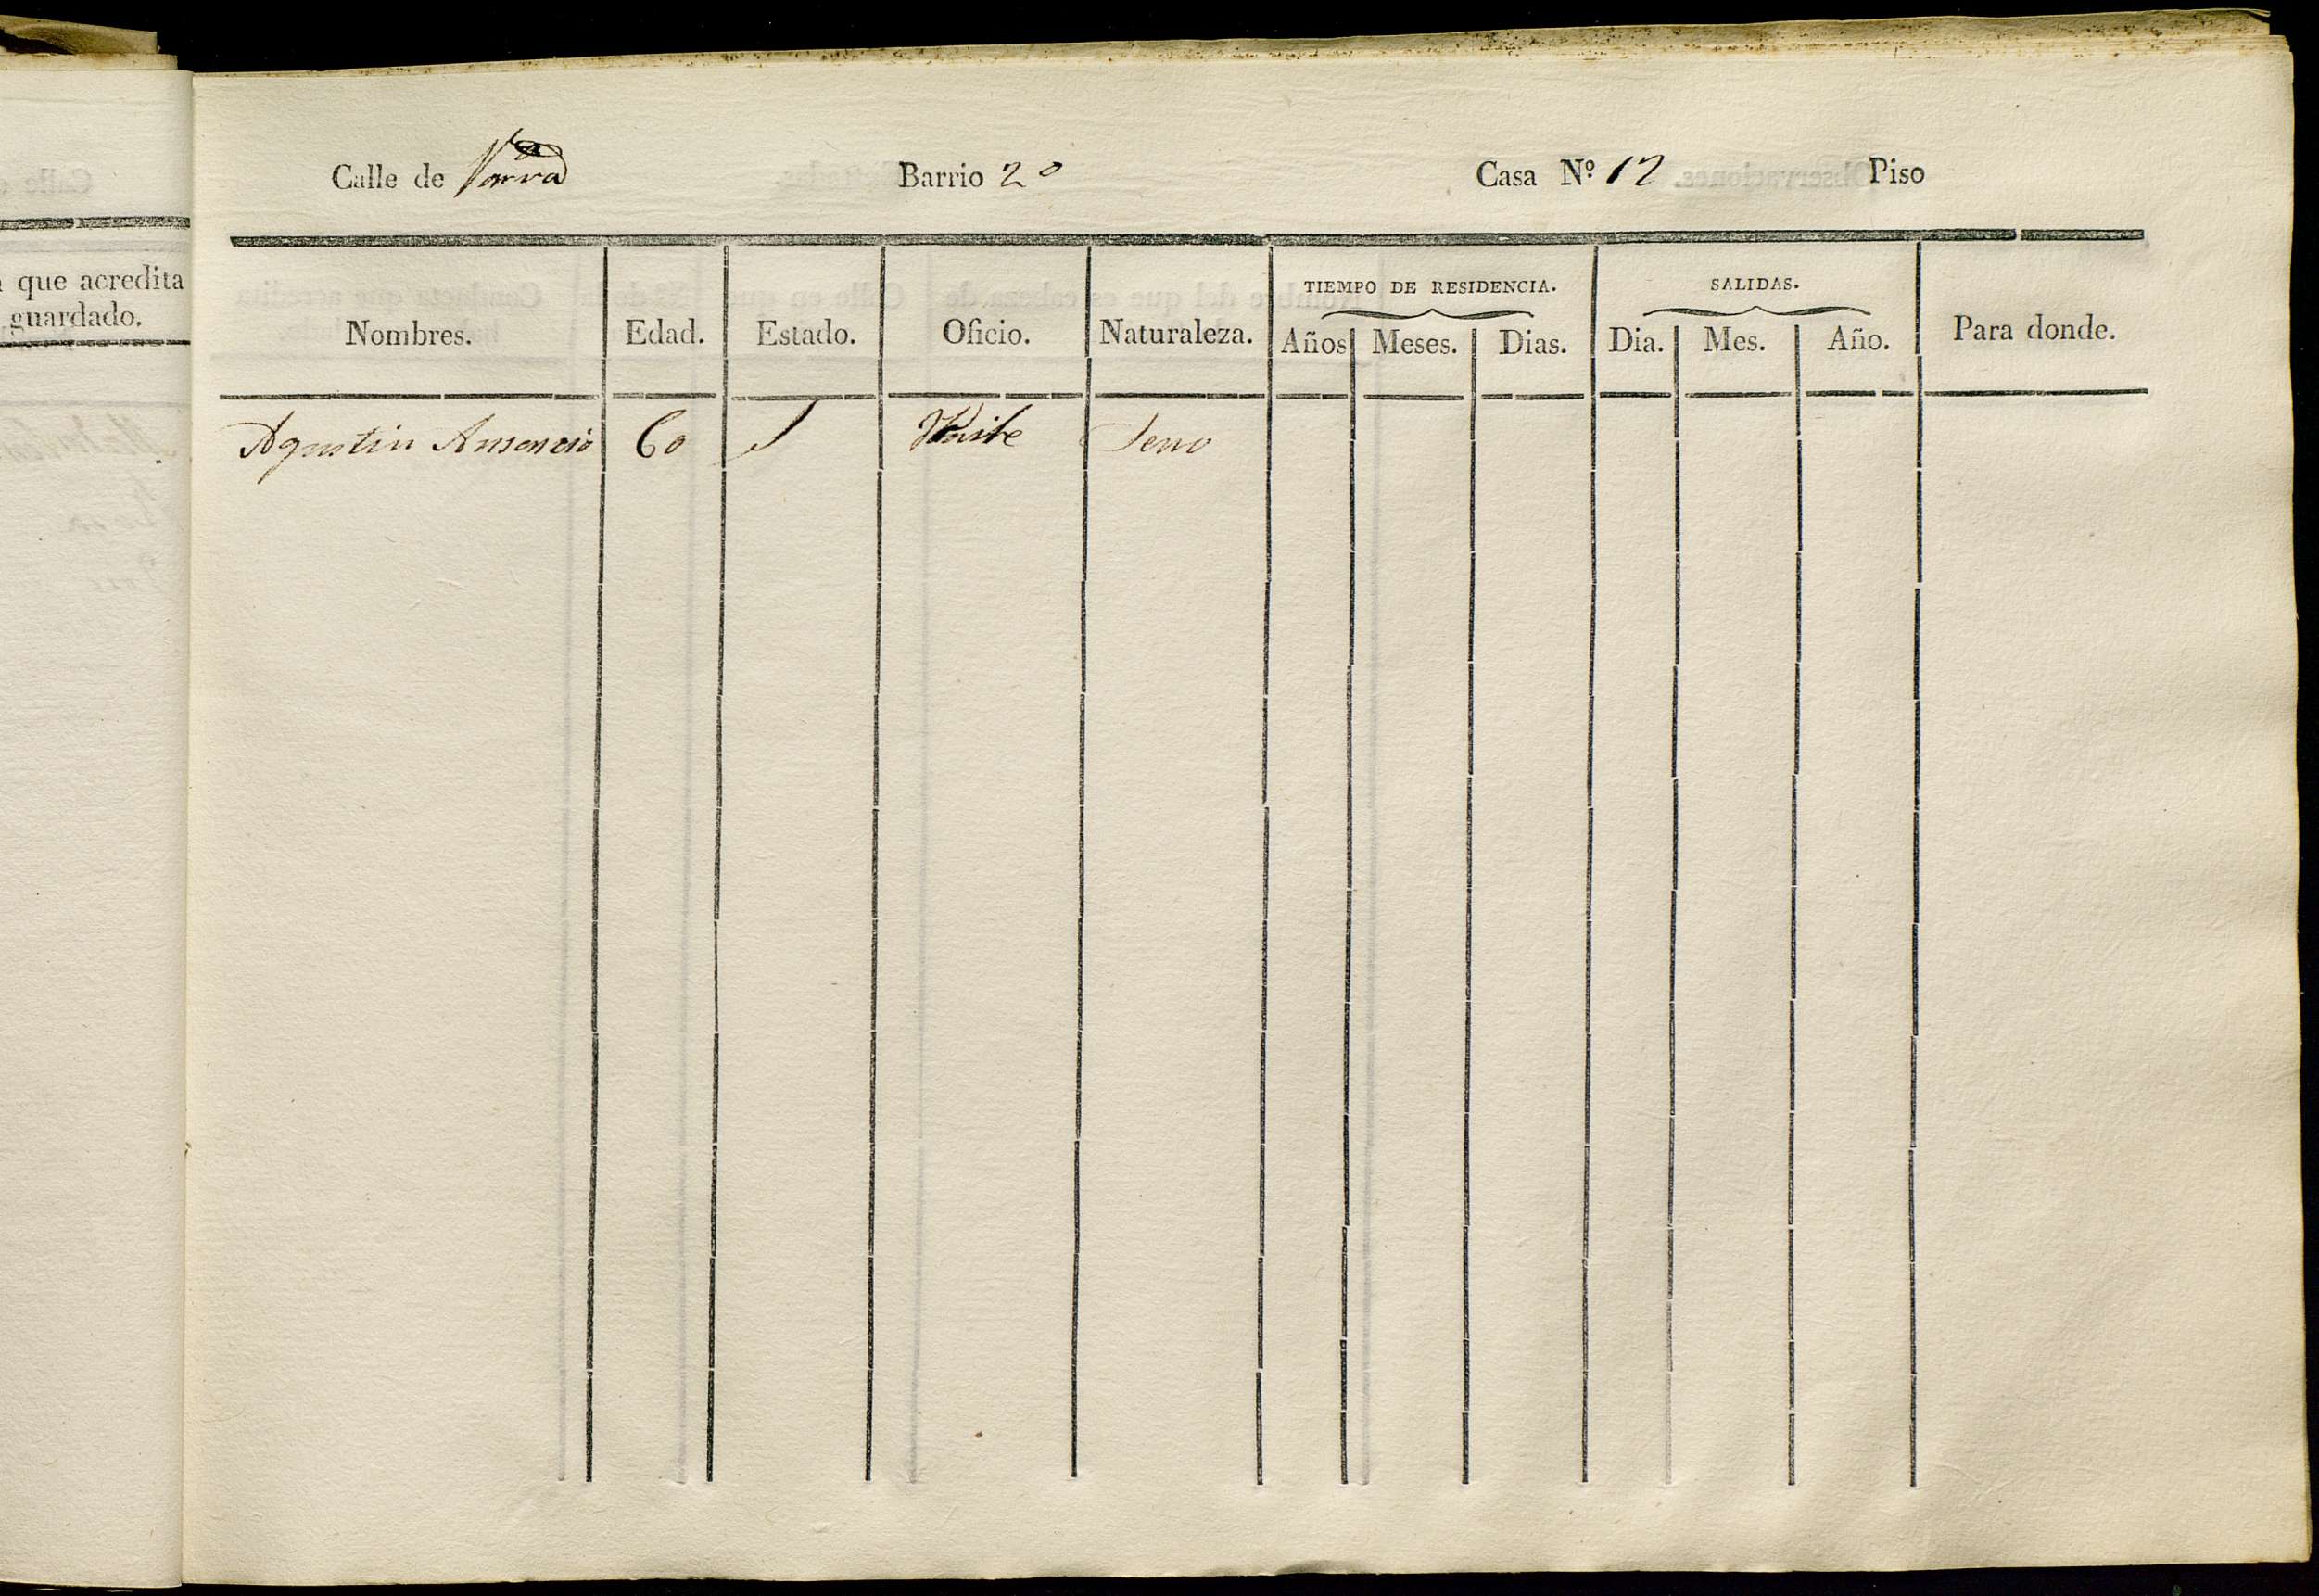 Calle de Parra Barrio 2º Casa Nº 12 Piso
que acredita
guardado.
TIEMPO DE RESIDENCIA. SALIDAS.
Nombres. Edad. Estado. Oficio. Naturaleza. Años Meses. Dias. Dia. Mes. Año. Para donde.
Agustin Ausencio 60 S